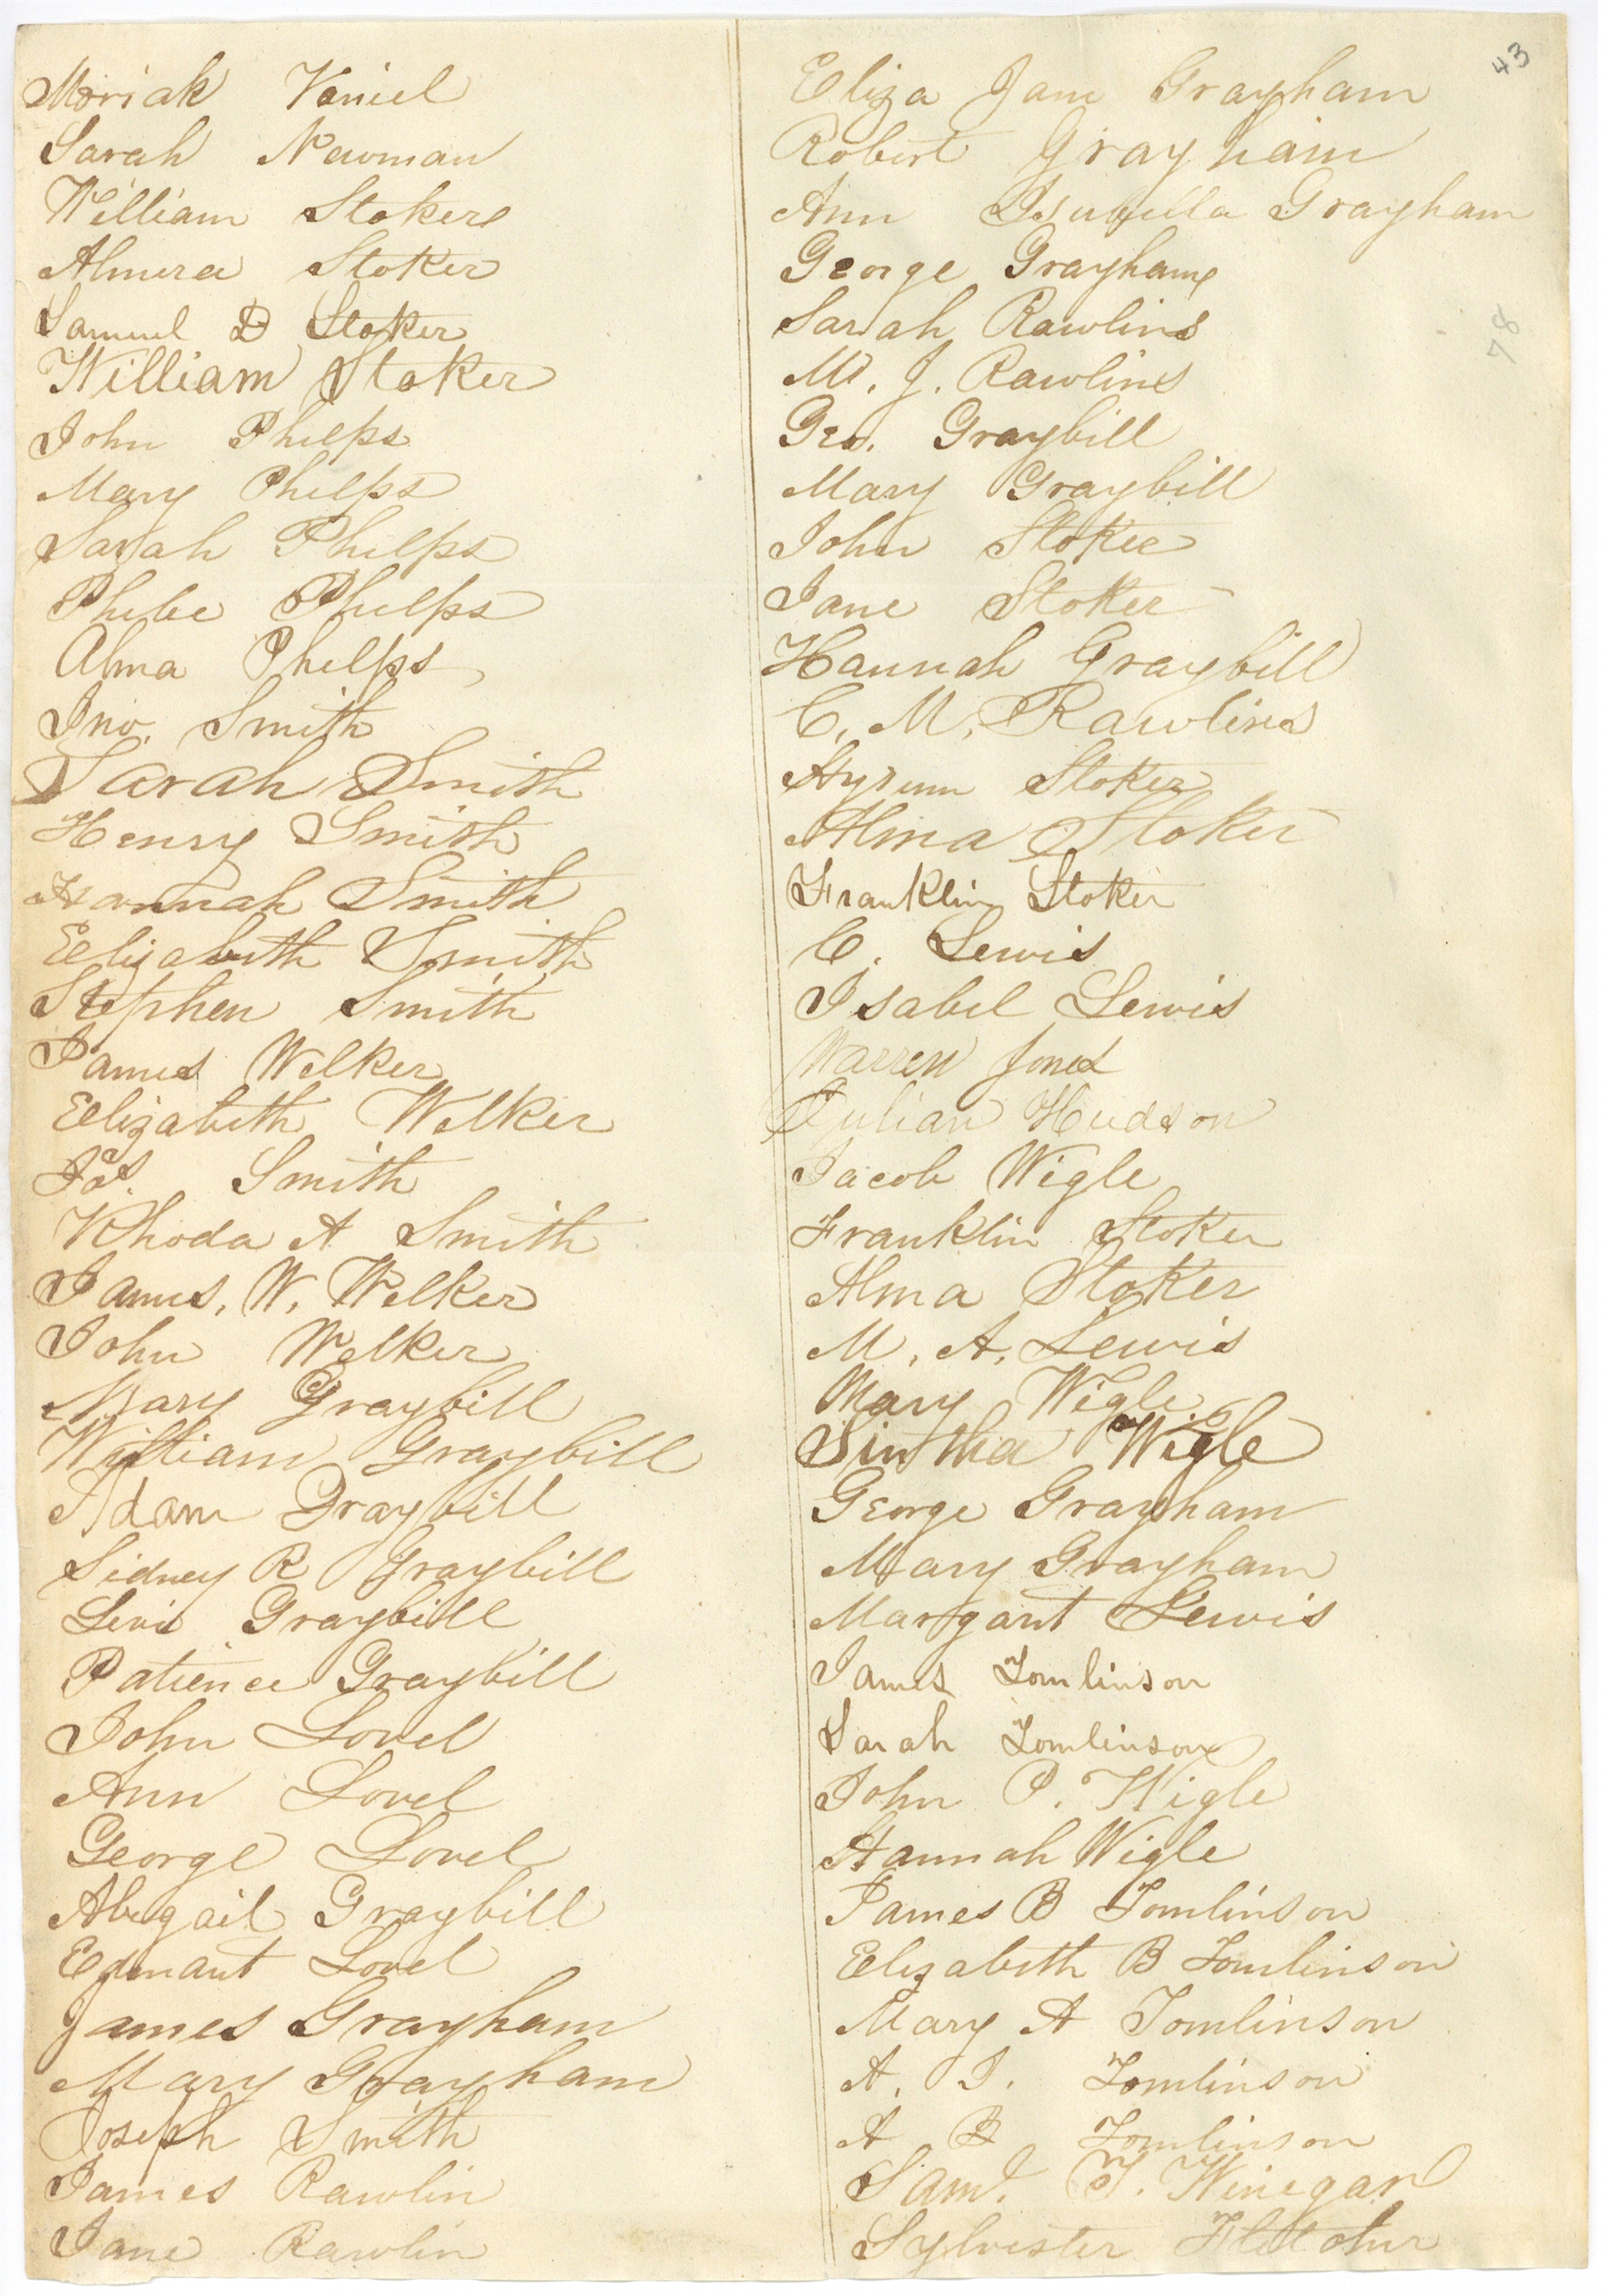 Moriah Vaniel
Sarah Newman
William Stoker
Almira Stoker
Samuel D Stoker
William Stoker
John Phelps
Mary Phelps
Sarah Phelps
Phebe Phelps
Alma Phelps
Jno. Smith
Sarah Smith
Henry Smith
Hannah Smith
Elizabeth Smith
Stephen Smith
James Welker
Elizabeth Welker
Jas. Smith
Rhoda A Smith
James. W. Welker
John Welker
Mary Graybill
William Graybill
Adam Graybill
Sidney R Graybill
Levi Graybill
Patience Graybill
John Lovel
Ann Lovel
George Lovel
Abigail Graybill
Lovel
James Grayham
Mary Grayham
Joseph Smith
James Rawlin
Jane Rawlin
43
Eliza Jane Grayham
Robert Grayham
Ann Isabella Grayham
George Grayham
Sarah Rawlins
78
M. J. Rawlins
Geo. Graybill
Mary Graybill
John Stoker
Jane Stoker
Hannah Graybill
C. M. Rawlins
Hyrum Stoker
Alma Stoker
Franklin Stoker
C. Lewis
Isabel Lewis
Warren Jones
Julian Hudson
Jacob Wigle
Franklin Stoker
Alma Stoker
M. A. Lewis
Mary Wigle
Sintha Wigle
George Grayham
Mary Grayham
Margant Lewis
James Tomlinson
Sarah Tomlinson
John P. Wigle
Hannah Wigle
James B Tomlinson
Elizabeth B Tomlinson
Mary A Tomlinson
A. J. Tomlinson
A B Tomlinson
Saml. T. Winegar
Sylvester Fletcher